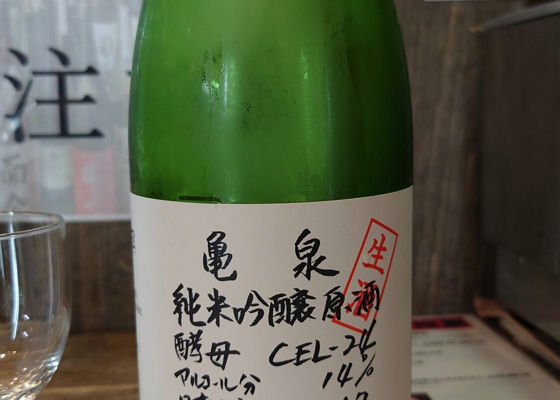 注
亀泉
生酒
純米吟醸原酒
酵母 CEL-24
アルコール分 14%